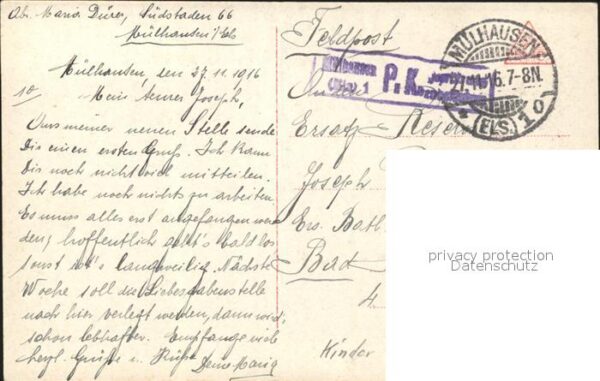 Abs. Maria Dürer, Südstaden 66
Mülhausen i/Els
Mülhausen, den 27.11.1916
Mein teurer Joseph,
Aus meiner neuen Stelle sende
Dir einen ersten Gruß. Ich kann
Dir noch nicht viel mitteilen.
Ich habe noch nichts zu arbeiten
Es muss alles erst angefangen wer-
den, hoffentlich geht's bald los
sonst ist's langweilig. Nächste
Woche soll die Liebesgabenstelle
nach hier verlegt werden, dann wird
schon lebhafter. Empfange viele
herzl. Grüße u. Küße
Deine Maria
Feldpost
P.K.
MÜLHAUSEN
27.11.16.7-8N.
* (ELS.) 1 o
Ersatz Reser
Joseph
Ers. Batl.
Bad
4.
Kinder
privacy protection
Datenschutz